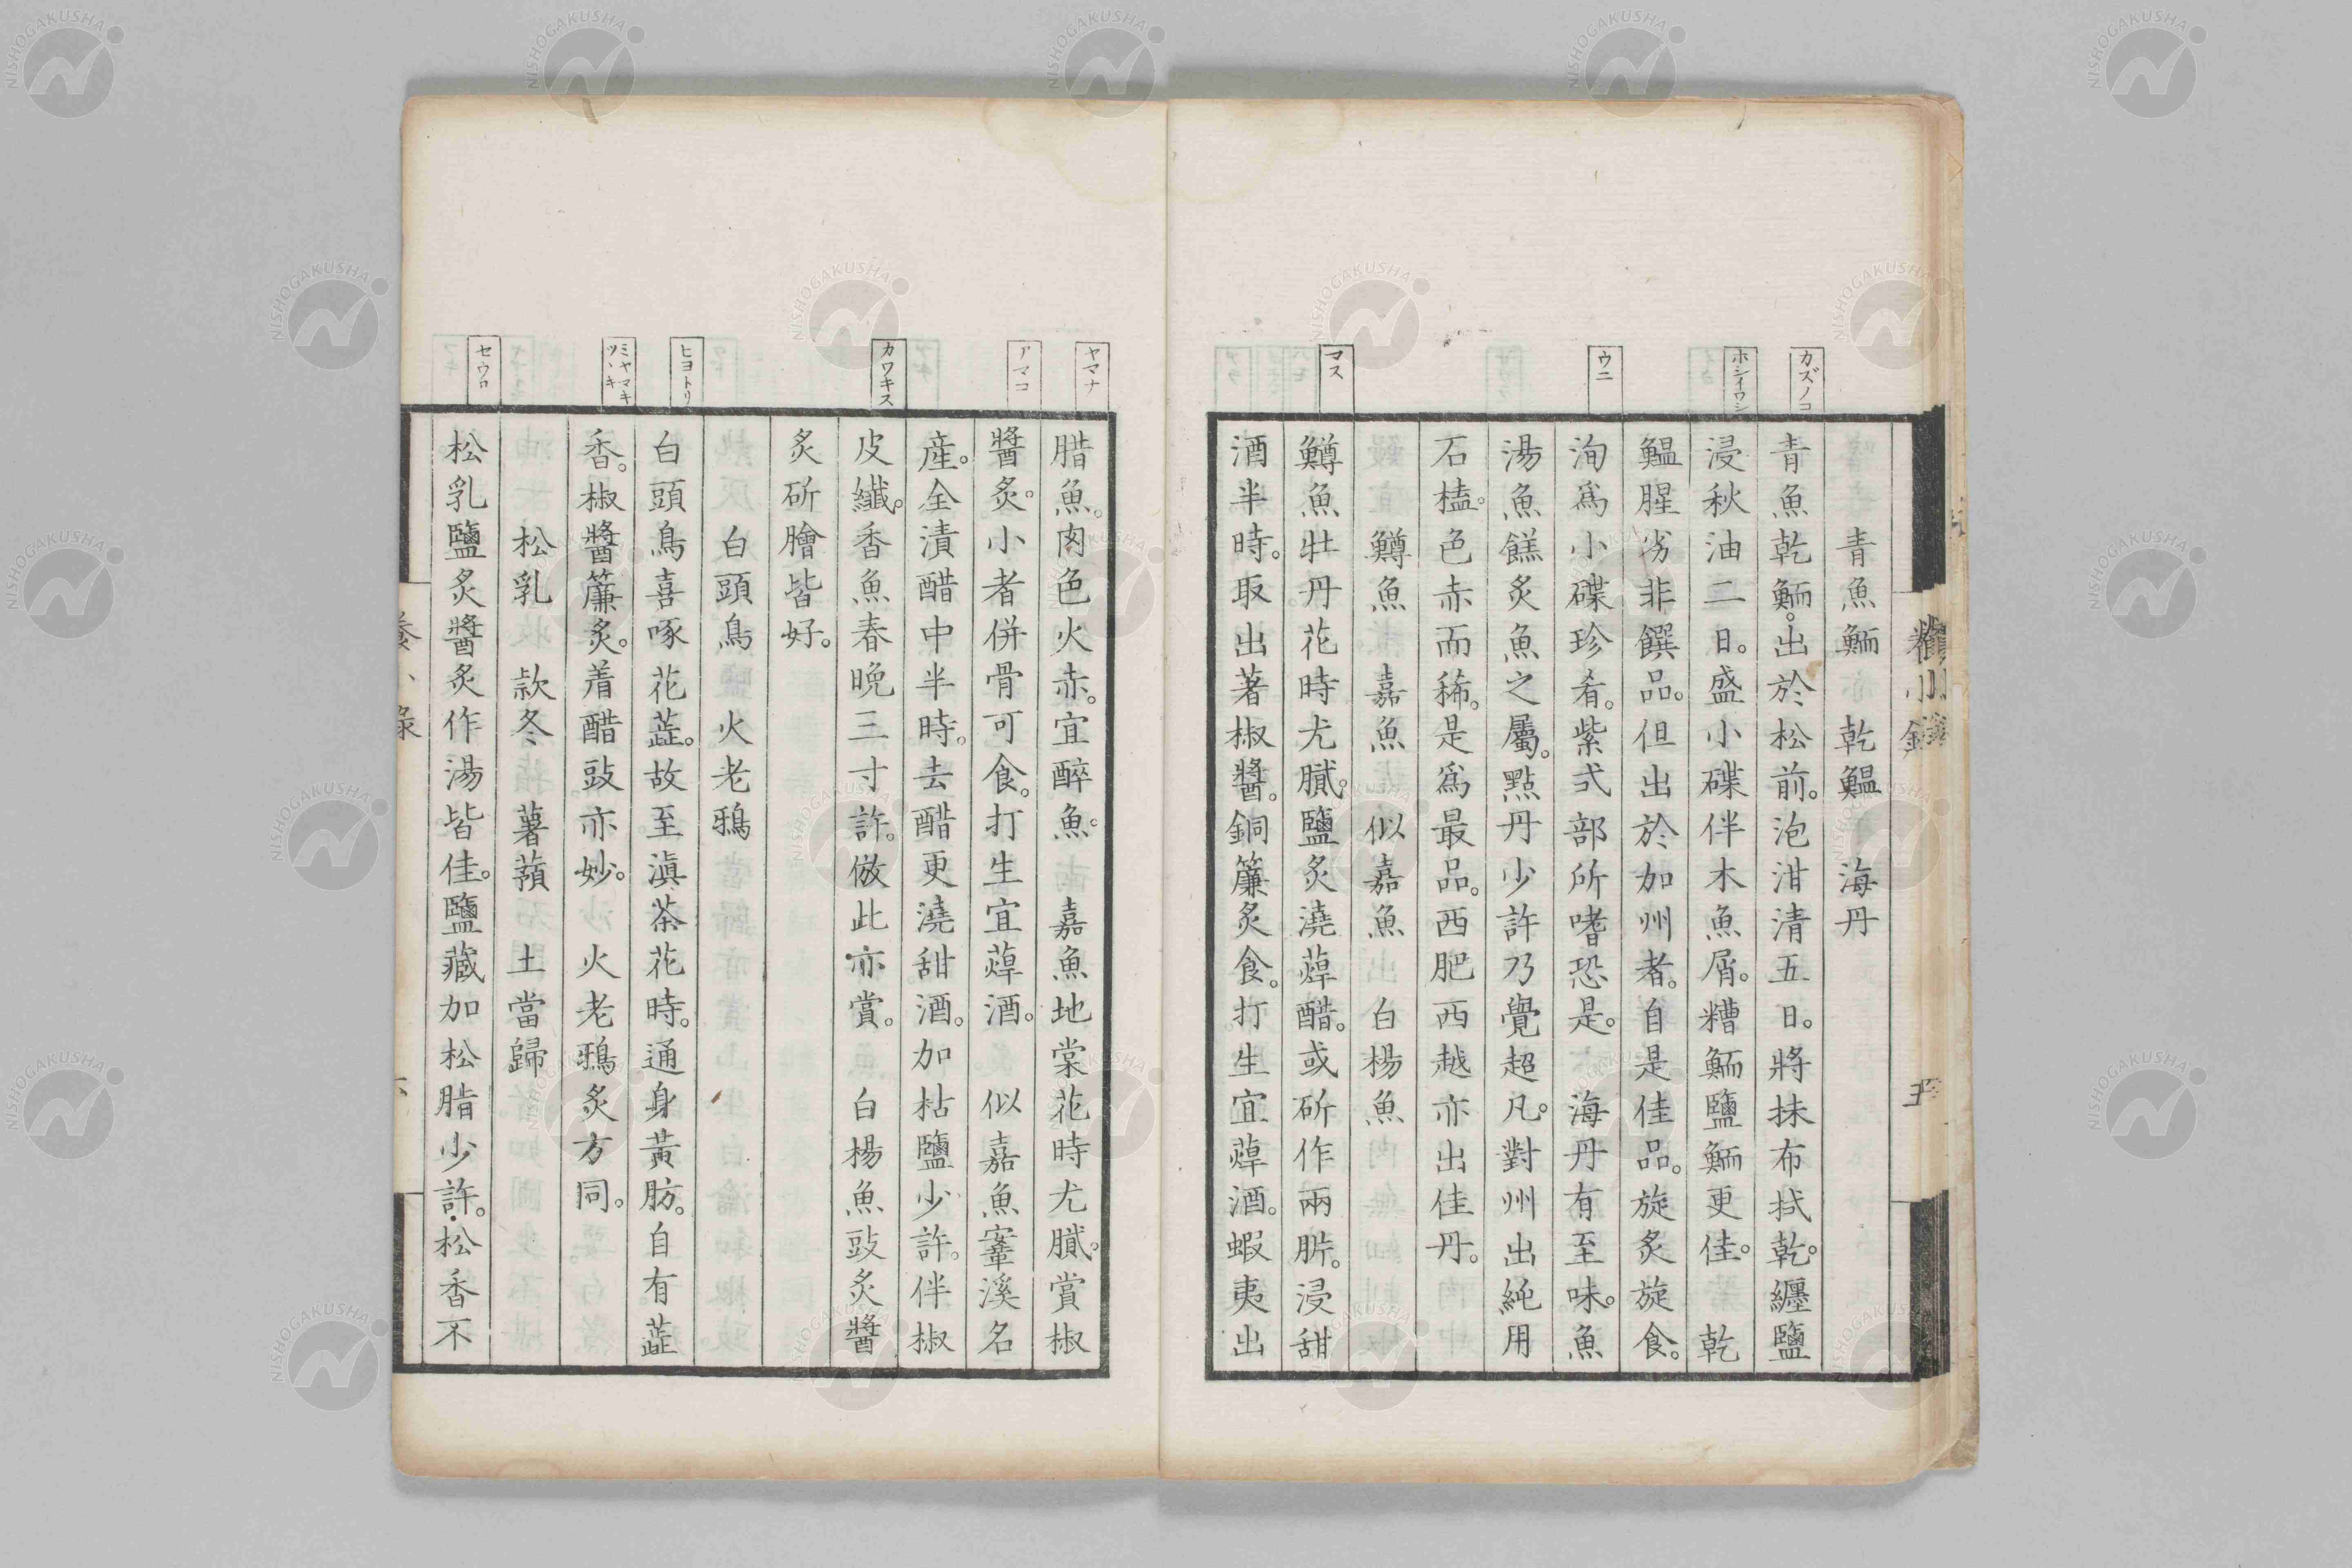 カズノコ
ホシイワシ
ウニ
マス
青魚鮞　乾鰮　海丹
青魚乾鮞。出於松前。泡泔清五日。將抹布拭乾。纒鹽
浸秋油二日。盛小碟伴木魚屑。糟鮞鹽鮞更佳。　乾
鰮腥劣非饌品。但出於加州者。自是佳品。旋炙旋食。
洵爲小碟珍肴。紫式部所嗜恐是。　海丹有至味。魚
湯魚餻炙魚之屬。點丹少許乃覺超凡。對州出純用
石榼。色赤而稀。是爲最品。西肥西越亦出佳丹。
鱒魚　嘉魚　似嘉魚　白楊魚
鱒魚牡丹花時尤膩。鹽炙澆蕁醋。或斫作兩胏。浸甜
酒半時。取出著椒醬。銅簾炙食。打生宜蕁酒。蝦夷出
ヤマナ
アマコ
カワキス
ヒヨトリ
ミヤマキ
ツヽキ
セウロ
腊魚。肉色火赤。宜醉魚。　嘉魚地棠花時尤膩。賞椒
醬炙。小者併骨可食。打生宜蕁酒。　似嘉魚鞌溪名
產。全漬醋中半時。去醋更澆甜酒。加枯鹽少許。伴椒
皮纖。香魚春晚三寸許。倣此亦賞。　白楊魚豉炙醬
炙斫膾皆好。
白頭鳥　火老鴉
白頭鳥喜啄花蕋。故至滇茶花時。通身黃肪。自有蕋
香。椒醬簾炙。着醋豉亦妙。　火老鴉炙方同。
松乳　款冬　薯蕷　土當歸
松乳鹽炙醬炙作湯皆佳。鹽藏加松脂少許。松香不